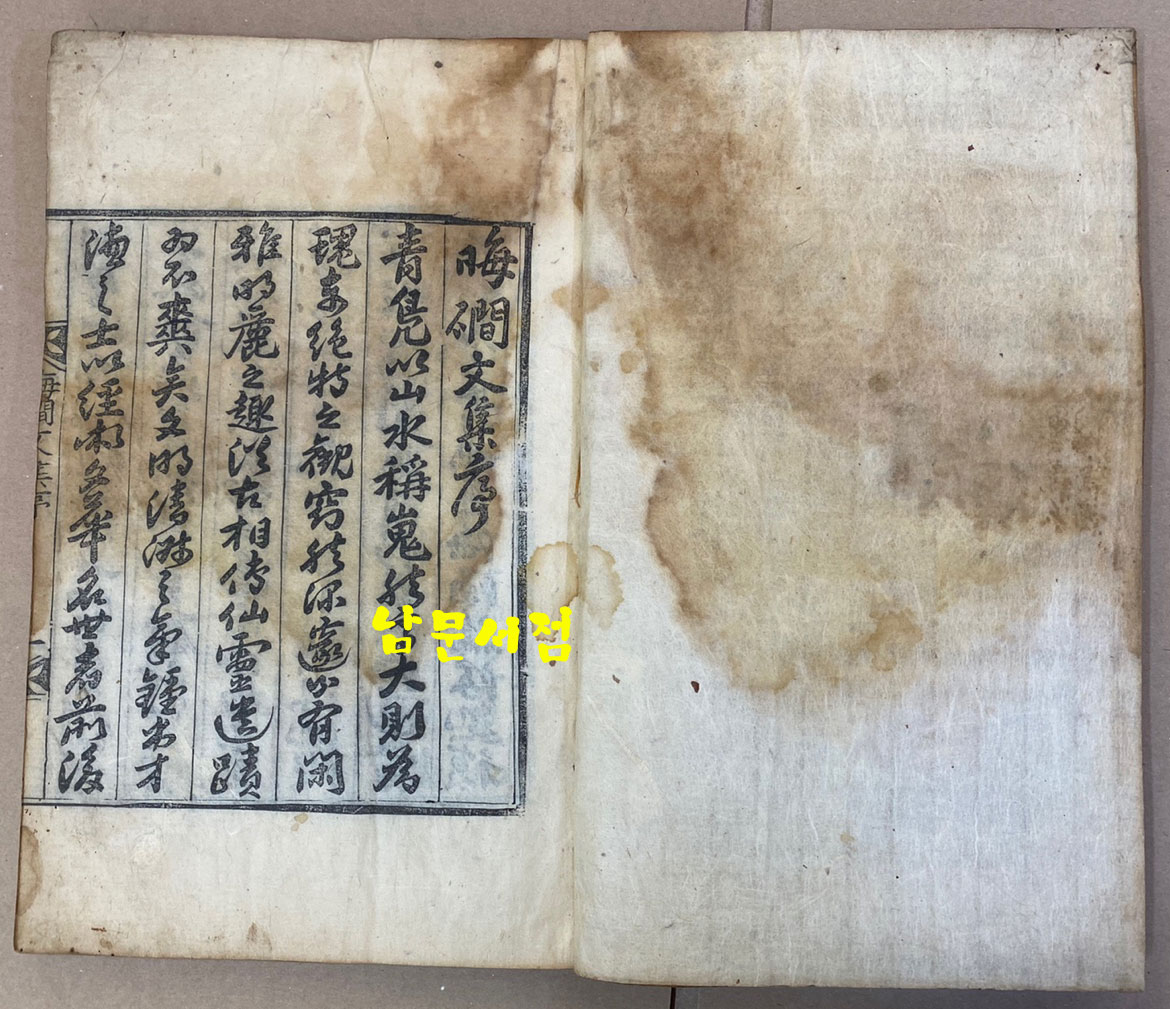 晦磵文集序
青鳧以山水稱嵬然大則為
瑰奇絶特之觀窈然深邃有閑
雅明麗之趣從古相傳仙靈遺蹟
不爽矣文明清淑之氣鍾才
德之士以經術文華名世者前後
晦磵文集序
남문서점